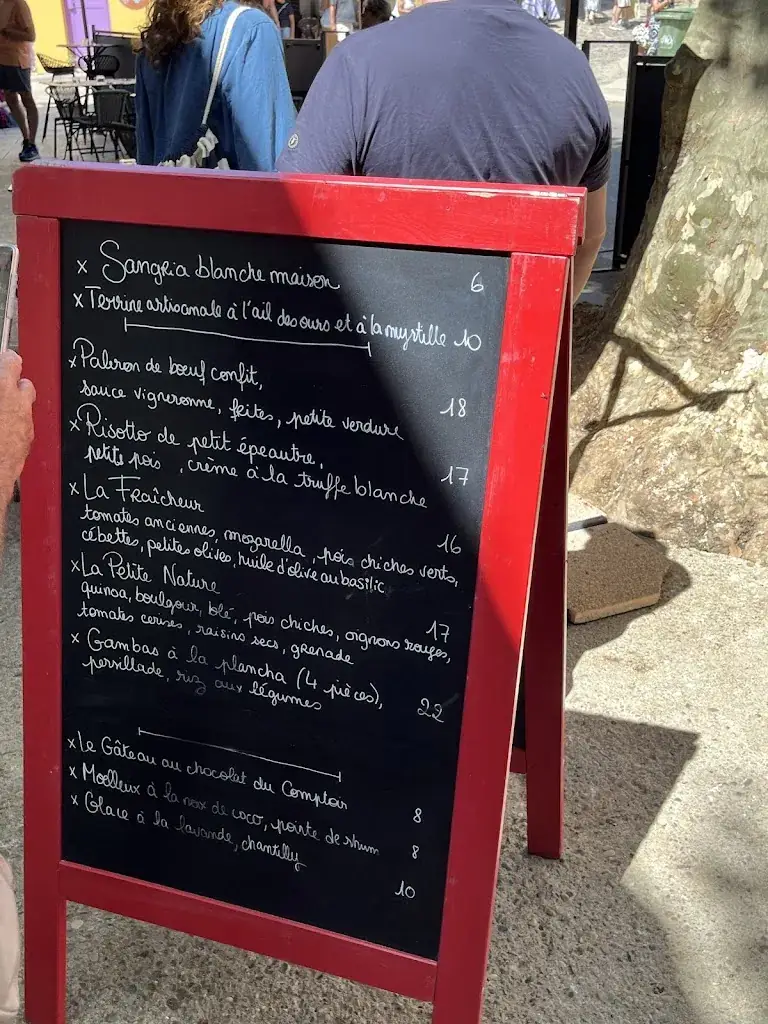 x Sangria blanche maison 6
x Terrine artisanale à l'ail des ours et à la myrtille 10
x Paleron de bœuf confit,
sauce vigneronne, frites, petite verdure 18
x Risotto de petit épeautre,
petits pois, crème à la truffe blanche 17
x La Fraîcheur 16
tomates anciennes, mozarella, pois chiches verts,
cébettes, petites olives, huile d'olive au basilic
x La Petite Nature 17
quinoa, boulgour, blé, pois chiches, oignons rouges,
tomates cerises, raisins secs, grenade
x Gambas à la plancha (4 pièces), 22
persillade, riz aux légumes
x Le Gâteau au chocolat du Comptoir 8
x Moelleux à la noix de coco, pointe de rhum 8
x Glace à la lavande, chantilly 10